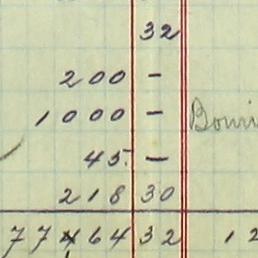 32
200 —
1000 —
45. —
218 30
77464 32 12